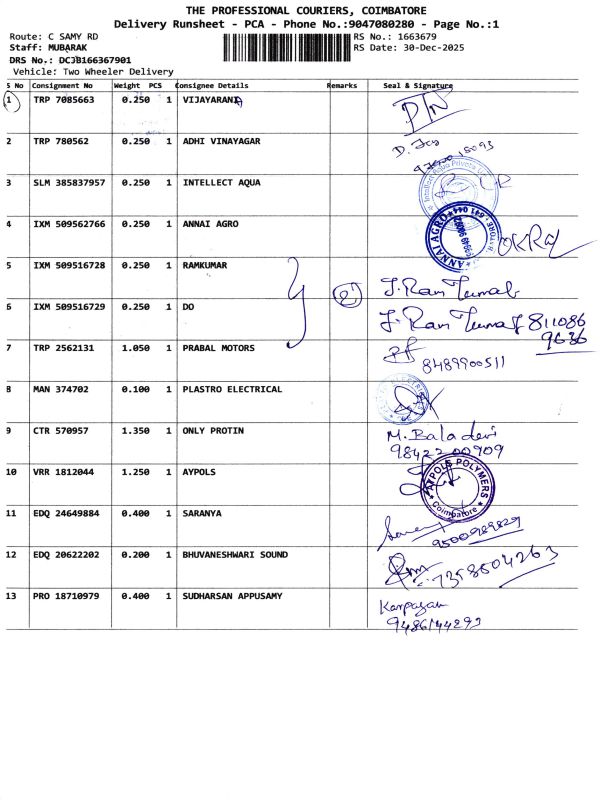 THE PROFESSIONAL COURIERS, COIMBATORE
Delivery Runsheet - PCA - Phone No.:9047080280 - Page No.:1
Route: C SAMY RD RS No.: 1663679
Staff: MUBARAK RS Date: 30-Dec-2025
DRS No.: DCJB166367901
Vehicle: Two Wheeler Delivery
S No Consignment No Weight PCS Consignee Details Remarks Seal & Signature
1 TRP 7085663 0.250 1 VIJAYARANI
2 TRP 780562 0.250 1 ADHI VINAYAGAR
3 SLM 385837957 0.250 1 INTELLECT AQUA
4 IXM 509562766 0.250 1 ANNAI AGRO ANNAI AGRO
5 IXM 509516728 0.250 1 RAMKUMAR 2 J. Ram Kumar
6 IXM 509516729 0.250 1 DO J. Ram Kumar 811086
9636
7 TRP 2562131 1.050 1 PRABAL MOTORS 8489900511
8 MAN 374702 0.100 1 PLASTRO ELECTRICAL
9 CTR 570957 1.350 1 ONLY PROTIN M. Baladevi
9842200909
10 VRR 1812044 1.250 1 AYPOLS AYPOLS POLYMERS Coimbatore
11 EDQ 24649884 0.400 1 SARANYA 9500989829
12 EDQ 20622202 0.200 1 BHUVANESHWARI SOUND 7358604263
13 PRO 18710979 0.400 1 SUDHARSAN APPUSAMY Karpagam
9486144293